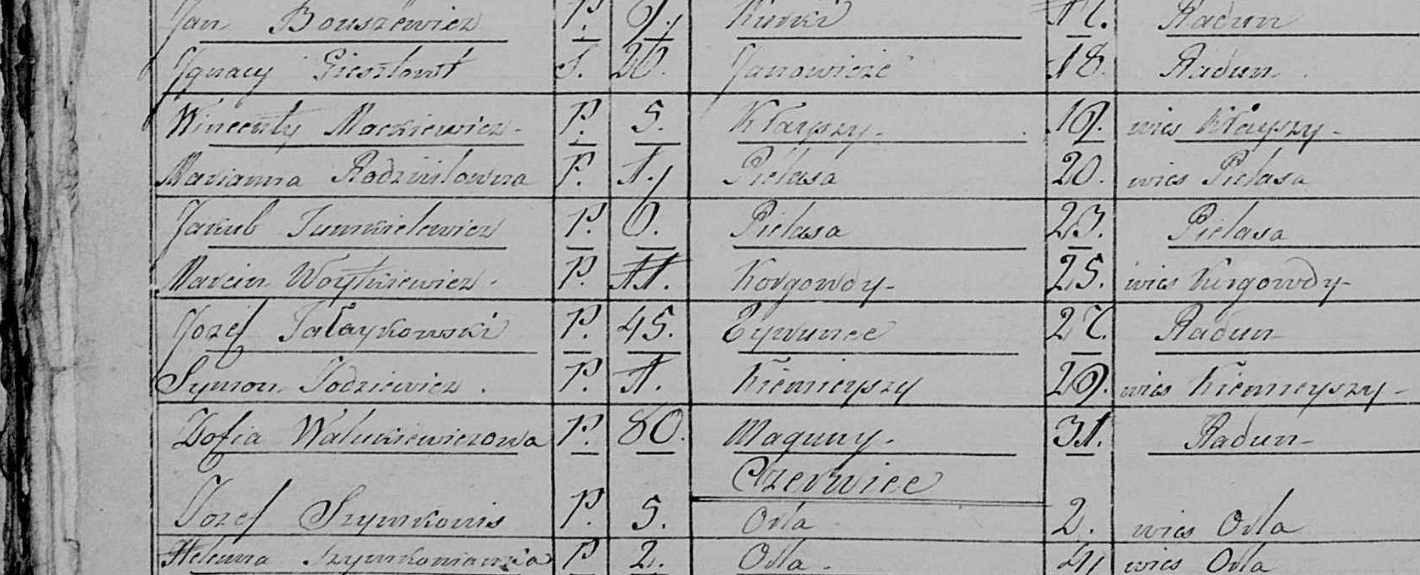 Jan Bouszewicz P. 9. Kunki 17. Radun
Ignacy Giesztowt S. 26. Janowicze 18. Radun
Wincenty Mackiewicz P. 5. Kłayszy 19. wieś Kłayszy
Maryanna Radziwilowna P. 1. Pielasa 20. wieś Pielasa
Jakub Tunkielewicz P. 6. Pielasa 23. Pielasa
Marcin Woytkiewicz P. 11. Korgowdy 25. wieś Korgowdy
Jozef Tałaykowski P. 45. Cywunce 27. Radun
Symon Jodziewicz P. 1. Kiemieyszy 29. wieś Kiemieyszy
Zofia Walukiewiczowa P. 80. Maguny 31. Radun
Czerwiec
Jozef Szymkonis P. 5. Orla 2. wieś Orla
Helenna Szymkoniowna P 2. Orla 4 wieś Orla